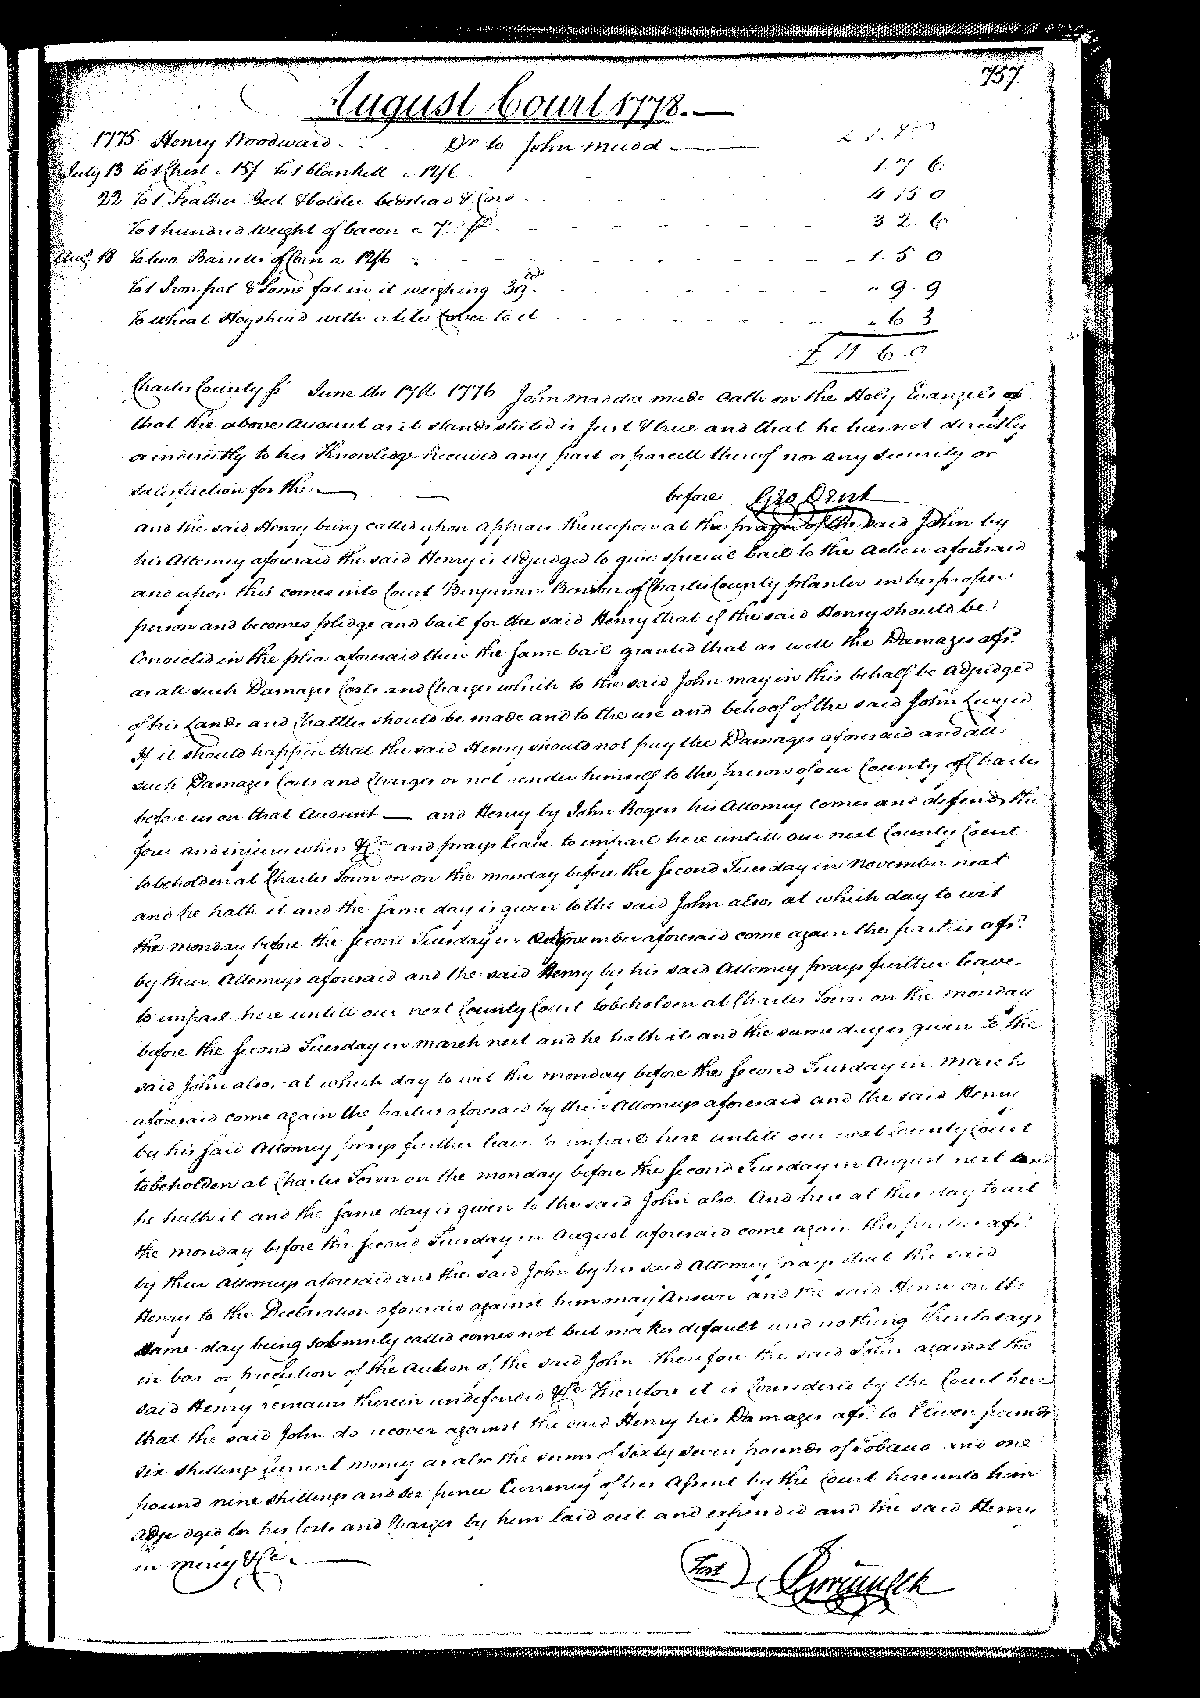 757
August Court 1778.
1775 Henry Woodward Dr to John Mudd £ S. D
July 13 to 1 Chest a 15/ to 1 blankett a 12/6 1. 7 6
22 to 1 Feather Bed & bolster bedstead & Cord 4 15 0
to 1 hundred weight of bacon a 3 2. 6
Augt 18 to two Barrells of Corn a 12/6 1. 5 0
to 1 Iron pot & Some fat in it weighing 39 " 9. 9
to wheat Hogshead with a Cover to it " 6 3
£ 11 6. 0
Charles County Ss June the 17th 1776 John Mudd made Oath on the Holy Evangels of
that the above Account as it stands stated is Just & true and that he has not directly
or indirectly to his Knowledge received any part or parcell thereof nor any Security or
satisfaction for the before Geo Dent
and the said Henry being called upon appears thereupon at the prayer of the said John by
his Attorney aforesaid the said Henry is adjudged to give special bail to the Action aforesaid
and upon this comes into Court Benjamin of Charles County planter in his proper
person and becomes pledge and bail for the said Henry that if the said Henry should be
Convicted in the plea aforesaid then the same bail granted that as well the Damages afsd
as all such Damages Costs and Charges which to the said John may in this behalf be adjudged
of his Lands and Chattles should be made and to the use and behoof of the said John Levyed
If it should happen that the said Henry should not pay the Damages aforesaid and all
such Damages Costs and Charges or not render himself to the prison of our County of Charles
before us on that Account and Henry by John Rogers his Attorney comes and defends the
force and injury when &Ca and prays leave to imparl here untill our next County Court
to be holden at Charles Town on on the monday before the Second Tuesday in November next
and he hath it and the same day is given to the said John also, at which day to wit
the monday before the Second Tuesday in November aforesaid come again the parties afsd
by their Attorneys aforesaid and the said Henry by his said Attorney prays further leave
to imparl here untill our next County Court to be holden at Charles Town on the monday
before the Second Tuesday in March next and he hath it and the same day is given to the
said John also, at which day to wit the monday before the Second Tuesday in March
aforesaid come again the parties aforesaid by their Attorneys aforesaid and the said Henry
by his said Attorney prays further leave to imparl here untill our next County Court
to be holden at Charles Town on the monday before the Second Tuesday in August next and
he hath it and the same day is given to the said John also. And here at this day to wit
the monday before the Second Tuesday in August aforesaid come again the parties afsd
by their Attorneys aforesaid and the said John by his said Attorney prays that the said
Henry to the Declaration aforesaid against him may Answer and the said Henry on the
same day being solemnly called comes not but makes default and nothing thereto says
in bar or preclusion of the Action of the said John therefore the said John against the
said Henry remains therein undefended &Ca Therefore it is Considered by the Court here
that the said John do recover against the said Henry his Damages afsd to Eleven pounds
six shillings Current money as also the sum of Sixty seven pounds of Tobacco and one
pound nine shillings and six pence Currency of his Assent by the Court here unto him
adjudged for his Costs and Charges by him laid out and expended and the said Henry
in mercy &Ca
Test